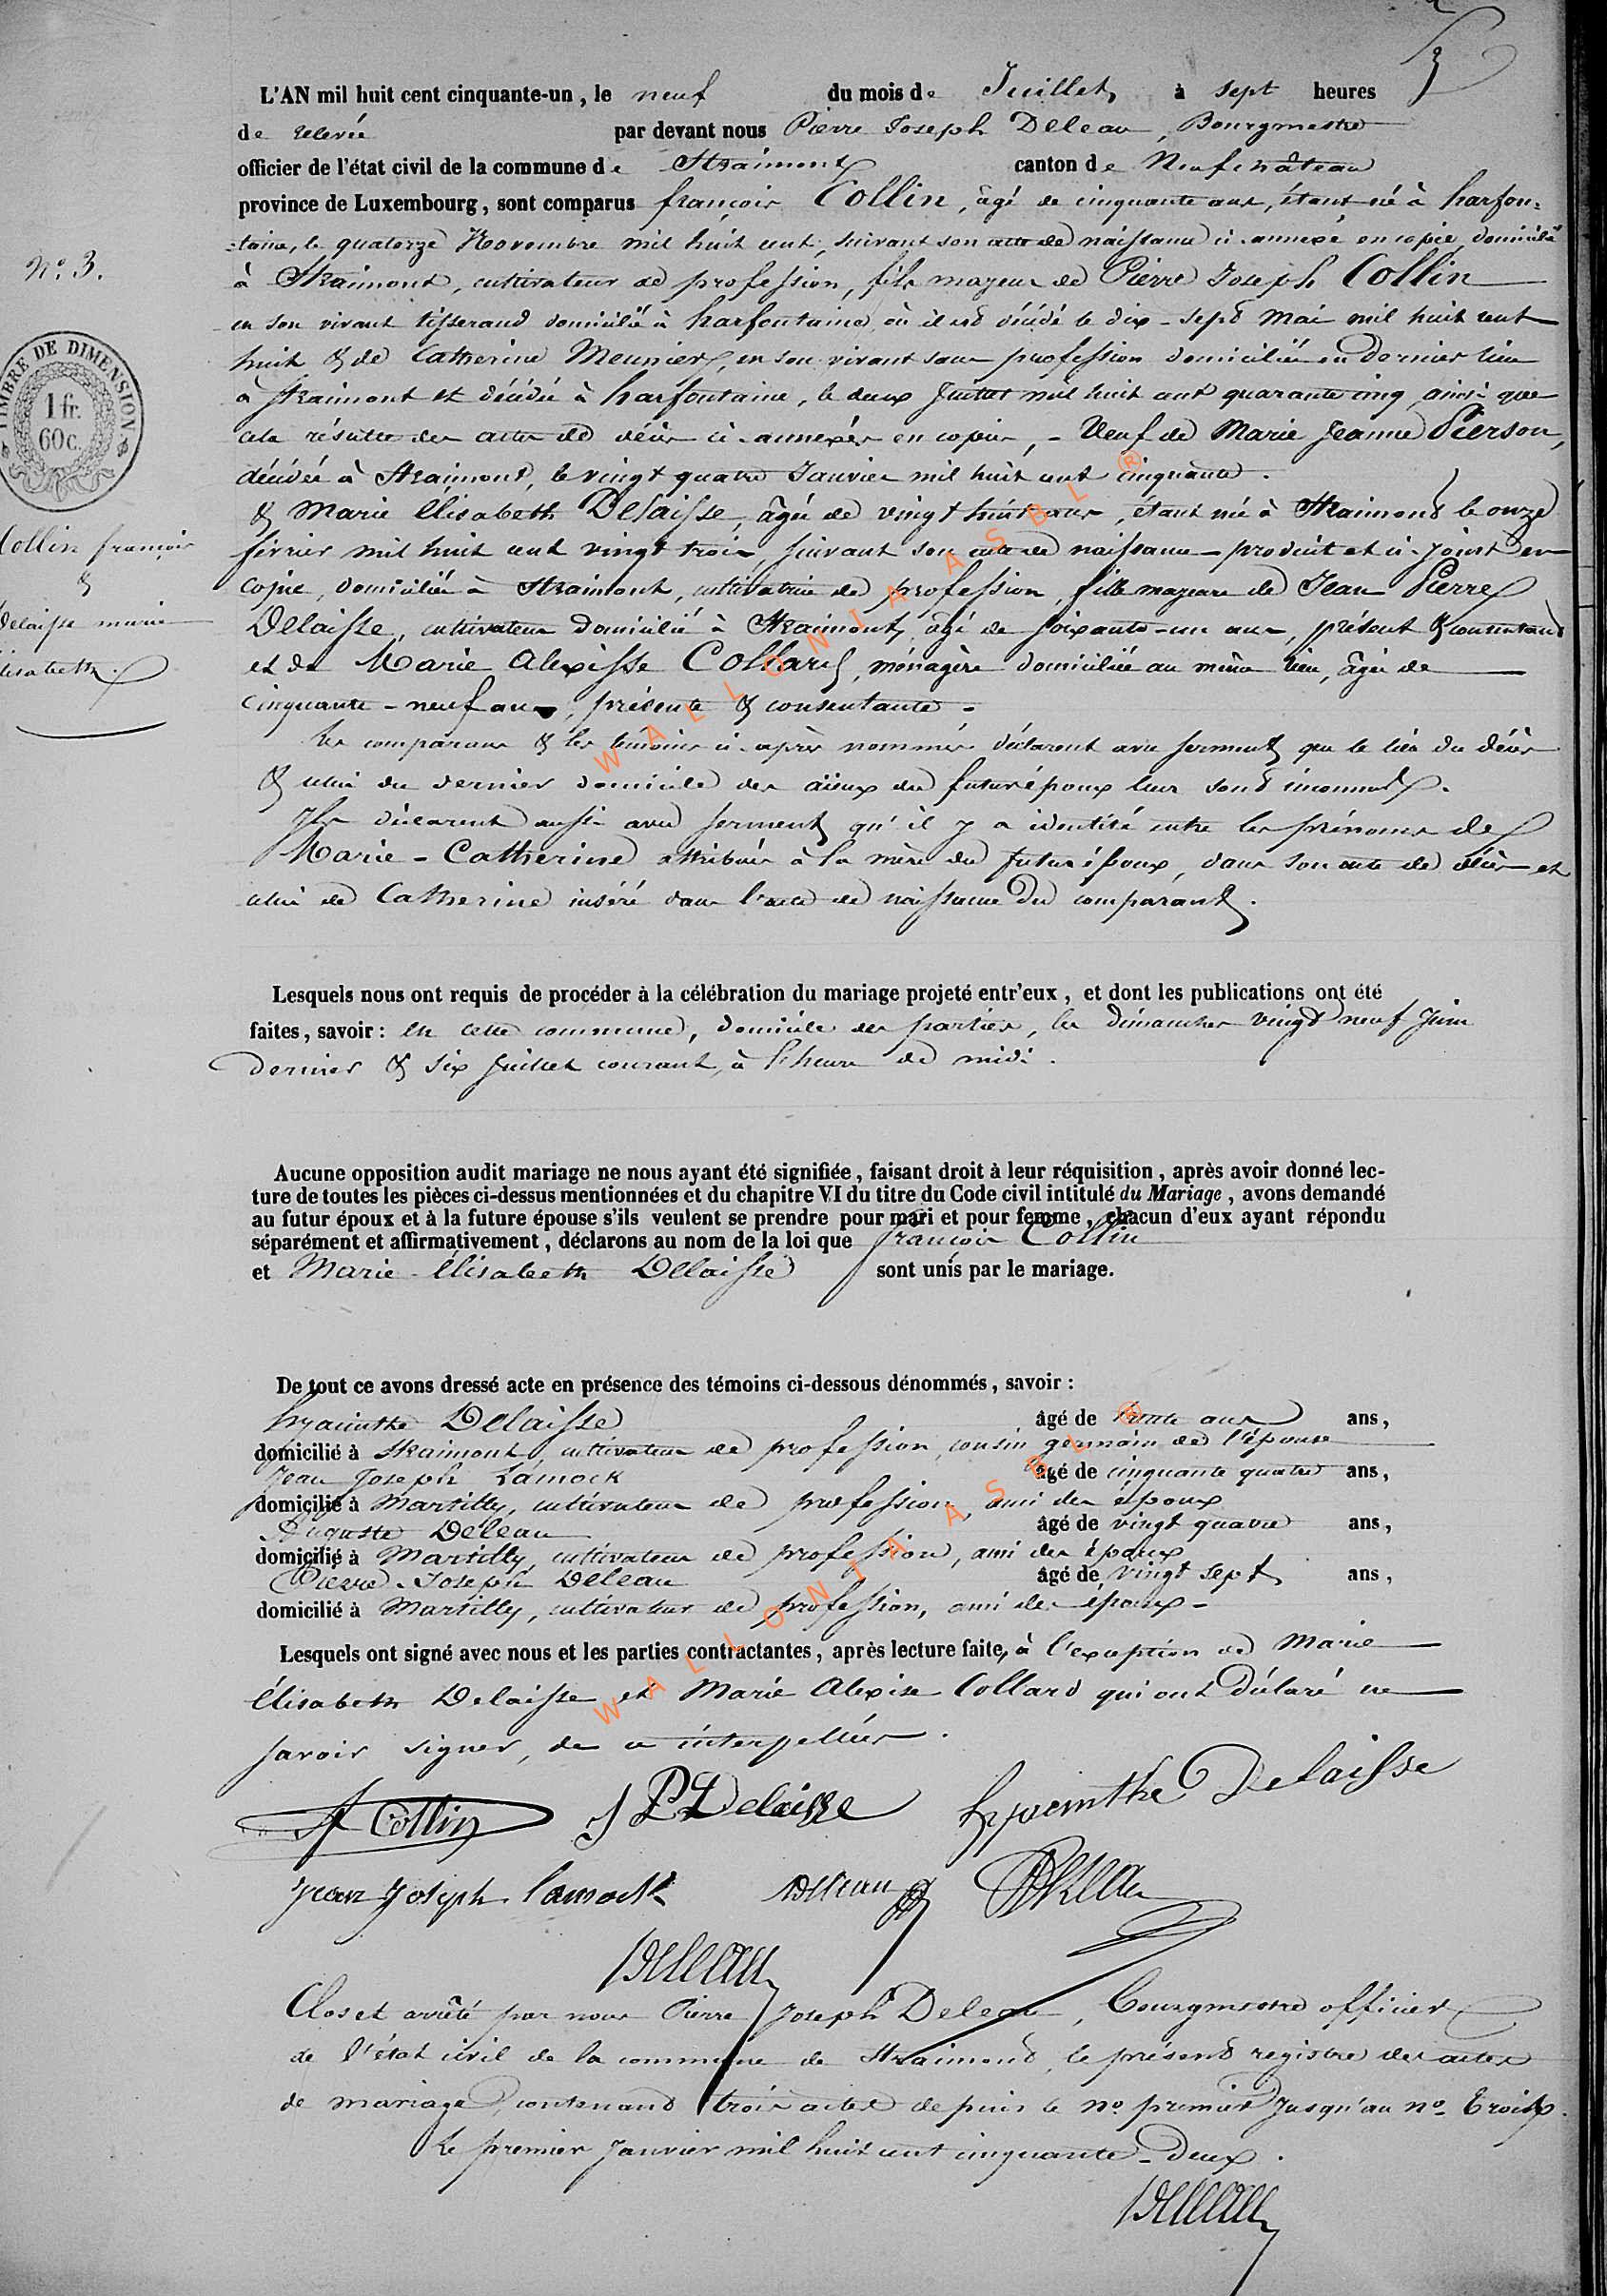 3
L'AN mil huit cent cinquante-un, le neuf du mois de Juillet, à sept heures
de relevée par devant nous Pierre Joseph Deleau, Bourgmestre
officier de l'état civil de la commune de Straimont canton de Neufchâteau
province de Luxembourg, sont comparus françois Collin, âgé de cinquante ans, étant né à harfon-
-taine, le quatorze Novembre mil huit cent, suivant son acte de naissance ci-annexé en copie, domicilié
N° 3.
à Straimont, cultivateur de profession, fils majeur de Pierre Joseph Collin
en son vivant tisserand domicilié à harfontaine, où il est décédé le dix-sept Mai mil huit cent
huit & de Catherine Meunier, en son vivant sans profession domiciliée en dernier lieu
à Straimont et décédée à harfontaine, le deux Juillet mil huit cent quarante cinq, ainsi que
cela résulte des actes de décès ci-annexés en copies, - Veuf de Marie Jeanne Pierson,
décédée à Straimont, le vingt quatre Janvier mil huit cent cinquante.
TIMBRE DE DIMENSION
1 fr.
60c.
& Marie Elisabeth Delaisse, âgée de vingt huit ans, étant née à Straimont le onze
Collin françois
&
Delaisse marie
élisabeth.
février mil huit cent vingt trois, suivant son acte de naissance produit et ci-joint en
copie, domiciliée à Straimont, cultivatrice de profession, fille majeure de Jean Pierre
Delaisse, cultivateur domicilié à Straimont, âgé de soixante-un ans, présent & consentant
et de Marie Alexisse Collard, ménagère domiciliée au même lieu, âgée de
cinquante-neuf ans, présente & consentante.
Les comparans & les témoins ci-après nommés déclarent avec serment que le lieu du décès
& celui du dernier domicile des aïeux du futur époux leur sont inconnus.
Ils déclarent aussi avec serment qu'il y a identité entre les prénoms de
Marie-Catherine attribués à la mère du futur époux, dans son acte de décès et
celui de Catherine inséré dans l'acte de naissance du comparant.
Lesquels nous ont requis de procéder à la célébration du mariage projeté entr'eux, et dont les publications ont été
faites, savoir: en cette commune, domicile des parties, les dimanches vingt neuf Juin
dernier & six Juillet courant, à l'heure de midi.
Aucune opposition audit mariage ne nous ayant été signifiée, faisant droit à leur réquisition, après avoir donné lec-
ture de toutes les pièces ci-dessus mentionnées et du chapitre VI du titre du Code civil intitulé du Mariage, avons demandé
au futur époux et à la future épouse s'ils veulent se prendre pour mari et pour femme, chacun d'eux ayant répondu
séparément et affirmativement, déclarons au nom de la loi que françois Collin
et Marie-Elisabeth Delaisse sont unis par le mariage.
De tout ce avons dressé acte en présence des témoins ci-dessous dénommés, savoir:
hyacinthe Delaisse âgé de trente ans ans,
domicilié à Straimont, cultivateur de profession, cousin germain de l'épouse
Jean Joseph Lamock âgé de cinquante quatre ans,
domicilié à Martilly, cultivateur de profession, ami des époux
Auguste Deleau âgé de vingt quatre ans,
domicilié à Martilly, cultivateur de profession, ami des époux
Pierre-Joseph Deleau âgé de vingt sept ans,
domicilié à Martilly, cultivateur de profession, ami des époux-
Lesquels ont signé avec nous et les parties contractantes, après lecture faite, à l'exception de Marie
Élisabeth Delaisse et Marie Alexise Collard qui ont déclaré ne
savoir signer, de ce interpellées.
f Collin J P Delaisse hyacinthe Delaisse
Jean Joseph Lamock Deleau Deleau
Deleau
Clos et arrêté par nous Pierre Joseph Deleau, Bourgmestre officier
de l'état civil de la commune de Straimont, le présent registre des actes
de mariage, contenant trois actes depuis le n° premier jusqu'au n° trois.
Le premier Janvier mil huit cent cinquante-deux.
Deleau
WALLONIA ASBL ®
WALLONIA ASBL ®